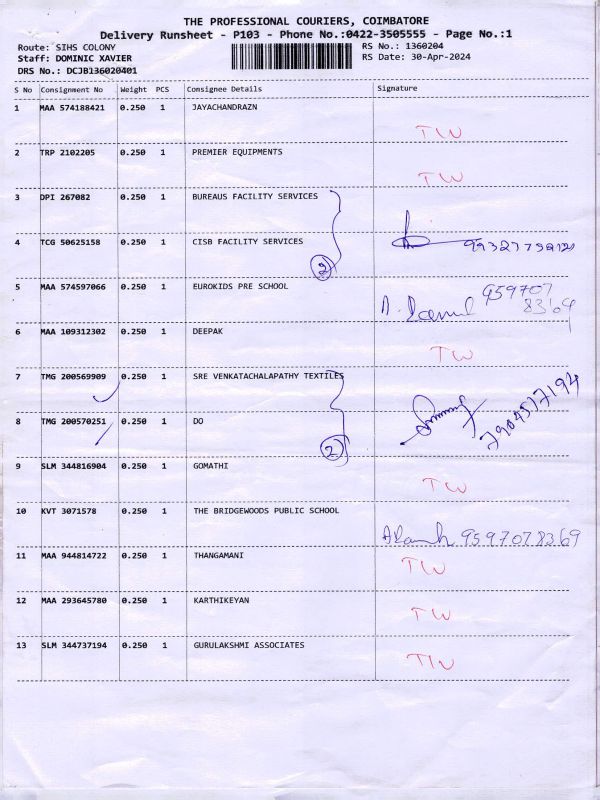 THE PROFESSIONAL COURIERS, COIMBATORE
Delivery Runsheet - P103 - Phone No.:0422-3505555 - Page No.:1
Route: SIHS COLONY RS No.: 1360204
Staff: DOMINIC XAVIER RS Date: 30-Apr-2024
DRS No.: DCJB136020401
S No Consignment No Weight PCS Consignee Details Signature
1 MAA 574188421 0.250 1 JAYACHANDRAZN
TW
2 TRP 2102205 0.250 1 PREMIER EQUIPMENTS
TW
3 DPI 267082 0.250 1 BUREAUS FACILITY SERVICES
4 TCG 50625158 0.250 1 CISB FACILITY SERVICES
2
5 MAA 574597066 0.250 1 EUROKIDS PRE SCHOOL 959707
8369
6 MAA 109312302 0.250 1 DEEPAK
TW
7 TMG 200569909 0.250 1 SRE VENKATACHALAPATHY TEXTILES
7904517194
8 TMG 200570251 0.250 1 DO
2
9 SLM 344816904 0.250 1 GOMATHI
TW
10 KVT 3071578 0.250 1 THE BRIDGEWOODS PUBLIC SCHOOL
9597078369
11 MAA 944814722 0.250 1 THANGAMANI
TW
12 MAA 293645780 0.250 1 KARTHIKEYAN
TW
13 SLM 344737194 0.250 1 GURULAKSHMI ASSOCIATES
TW